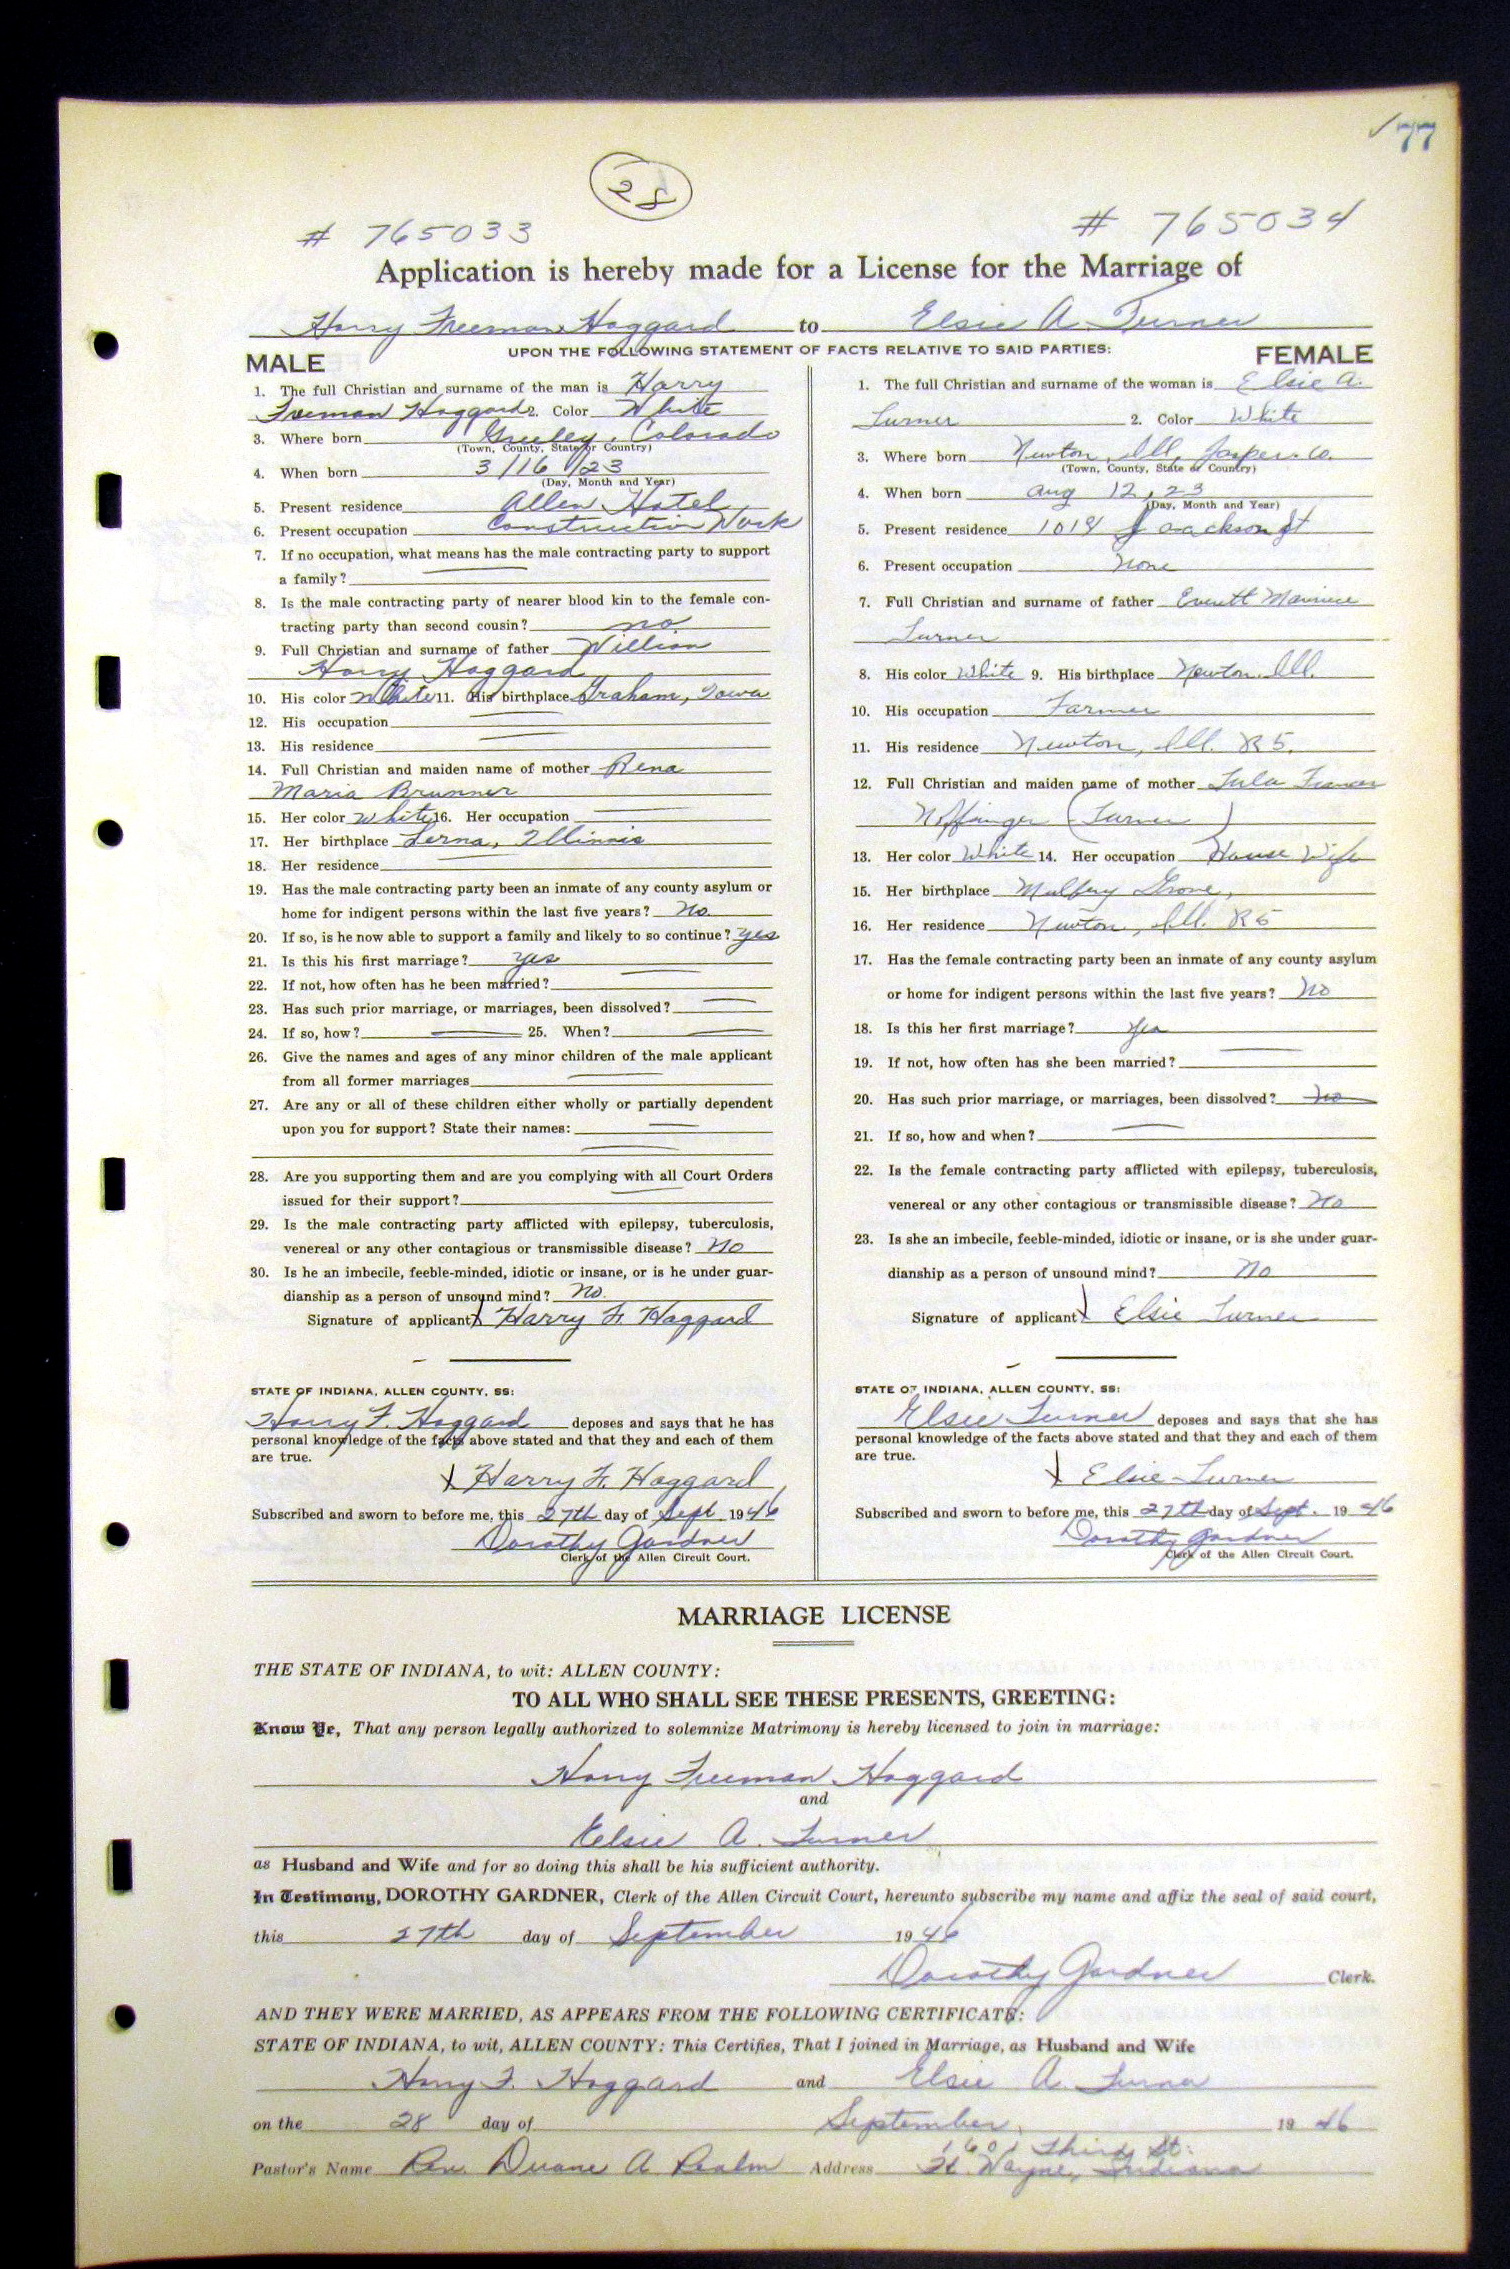 ✓ 77
28
# 765033 # 765034
Application is hereby made for a License for the Marriage of
Harry Freeman Haggard to Elsie A Turner
UPON THE FOLLOWING STATEMENT OF FACTS RELATIVE TO SAID PARTIES:
MALE
1. The full Christian and surname of the man is Harry
Freeman Haggard 2. Color White
3. Where born Greeley, Colorado
(Town, County, State or Country)
4. When born 3/16/23
(Day, Month and Year)
5. Present residence Allen Hotel
6. Present occupation Construction Work
7. If no occupation, what means has the male contracting party to support
a family?
8. Is the male contracting party of nearer blood kin to the female con-
tracting party than second cousin? no
9. Full Christian and surname of father William
Harry Haggard
10. His color White 11. His birthplace Graham, Iowa
12. His occupation
13. His residence
14. Full Christian and maiden name of mother Rena
Maria Brunner
15. Her color White 16. Her occupation
17. Her birthplace Lerna, Illinois
18. Her residence
19. Has the male contracting party been an inmate of any county asylum or
home for indigent persons within the last five years? No
20. If so, is he now able to support a family and likely to so continue? yes
21. Is this his first marriage? yes
22. If not, how often has he been married?
23. Has such prior marriage, or marriages, been dissolved?
24. If so, how? 25. When?
26. Give the names and ages of any minor children of the male applicant
from all former marriages
27. Are any or all of these children either wholly or partially dependent
upon you for support? State their names:
28. Are you supporting them and are you complying with all Court Orders
issued for their support?
29. Is the male contracting party afflicted with epilepsy, tuberculosis,
venereal or any other contagious or transmissible disease? No
30. Is he an imbecile, feeble-minded, idiotic or insane, or is he under guar-
dianship as a person of unsound mind? No.
Signature of applicant X Harry F. Haggard
STATE OF INDIANA, ALLEN COUNTY, SS:
Harry F. Haggard deposes and says that he has
personal knowledge of the facts above stated and that they and each of them
are true.
X Harry F. Haggard
Subscribed and sworn to before me, this 27th day of Sept 1946
Dorothy Gardner
Clerk of the Allen Circuit Court.
FEMALE
1. The full Christian and surname of the woman is Elsie A.
Turner 2. Color White
3. Where born Newton, Ill, Jasper Co.
(Town, County, State or Country)
4. When born Aug 12, 23
(Day, Month and Year)
5. Present residence 1018 Jackson St
6. Present occupation None
7. Full Christian and surname of father Everett Maurice
Turner
8. His color White 9. His birthplace Newton, Ill.
10. His occupation Farmer
11. His residence Newton, Ill. R5.
12. Full Christian and maiden name of mother Lula Frances
(Turner)
13. Her color White 14. Her occupation House Wife
15. Her birthplace Mulbery Grove,
16. Her residence Newton, Ill. R5
17. Has the female contracting party been an inmate of any county asylum
or home for indigent persons within the last five years? No
18. Is this her first marriage? Yes
19. If not, how often has she been married?
20. Has such prior marriage, or marriages, been dissolved? No
21. If so, how and when?
22. Is the female contracting party afflicted with epilepsy, tuberculosis,
venereal or any other contagious or transmissible disease? No
23. Is she an imbecile, feeble-minded, idiotic or insane, or is she under guar-
dianship as a person of unsound mind? No
Signature of applicant X Elsie Turner
STATE OF INDIANA, ALLEN COUNTY, SS:
Elsie Turner deposes and says that she has
personal knowledge of the facts above stated and that they and each of them
are true.
X Elsie Turner
Subscribed and sworn to before me, this 27th day of Sept. 1946
Dorothy Gardner
Clerk of the Allen Circuit Court.
MARRIAGE LICENSE
THE STATE OF INDIANA, to wit: ALLEN COUNTY:
TO ALL WHO SHALL SEE THESE PRESENTS, GREETING:
Know Ye, That any person legally authorized to solemnize Matrimony is hereby licensed to join in marriage:
Harry Freeman Haggard
and
Elsie A. Turner
as Husband and Wife and for so doing this shall be his sufficient authority.
In Testimony, DOROTHY GARDNER, Clerk of the Allen Circuit Court, hereunto subscribe my name and affix the seal of said court,
this 27th day of September 1946
Dorothy Gardner Clerk.
AND THEY WERE MARRIED, AS APPEARS FROM THE FOLLOWING CERTIFICATE:
STATE OF INDIANA, to wit, ALLEN COUNTY: This Certifies, That I joined in Marriage, as Husband and Wife
Harry F. Haggard and Elsie A. Turner
on the 28 day of September, 1946
1601 Third St.
Pastor's Name Rev. Duane A Address Ft. Wayne, Indiana